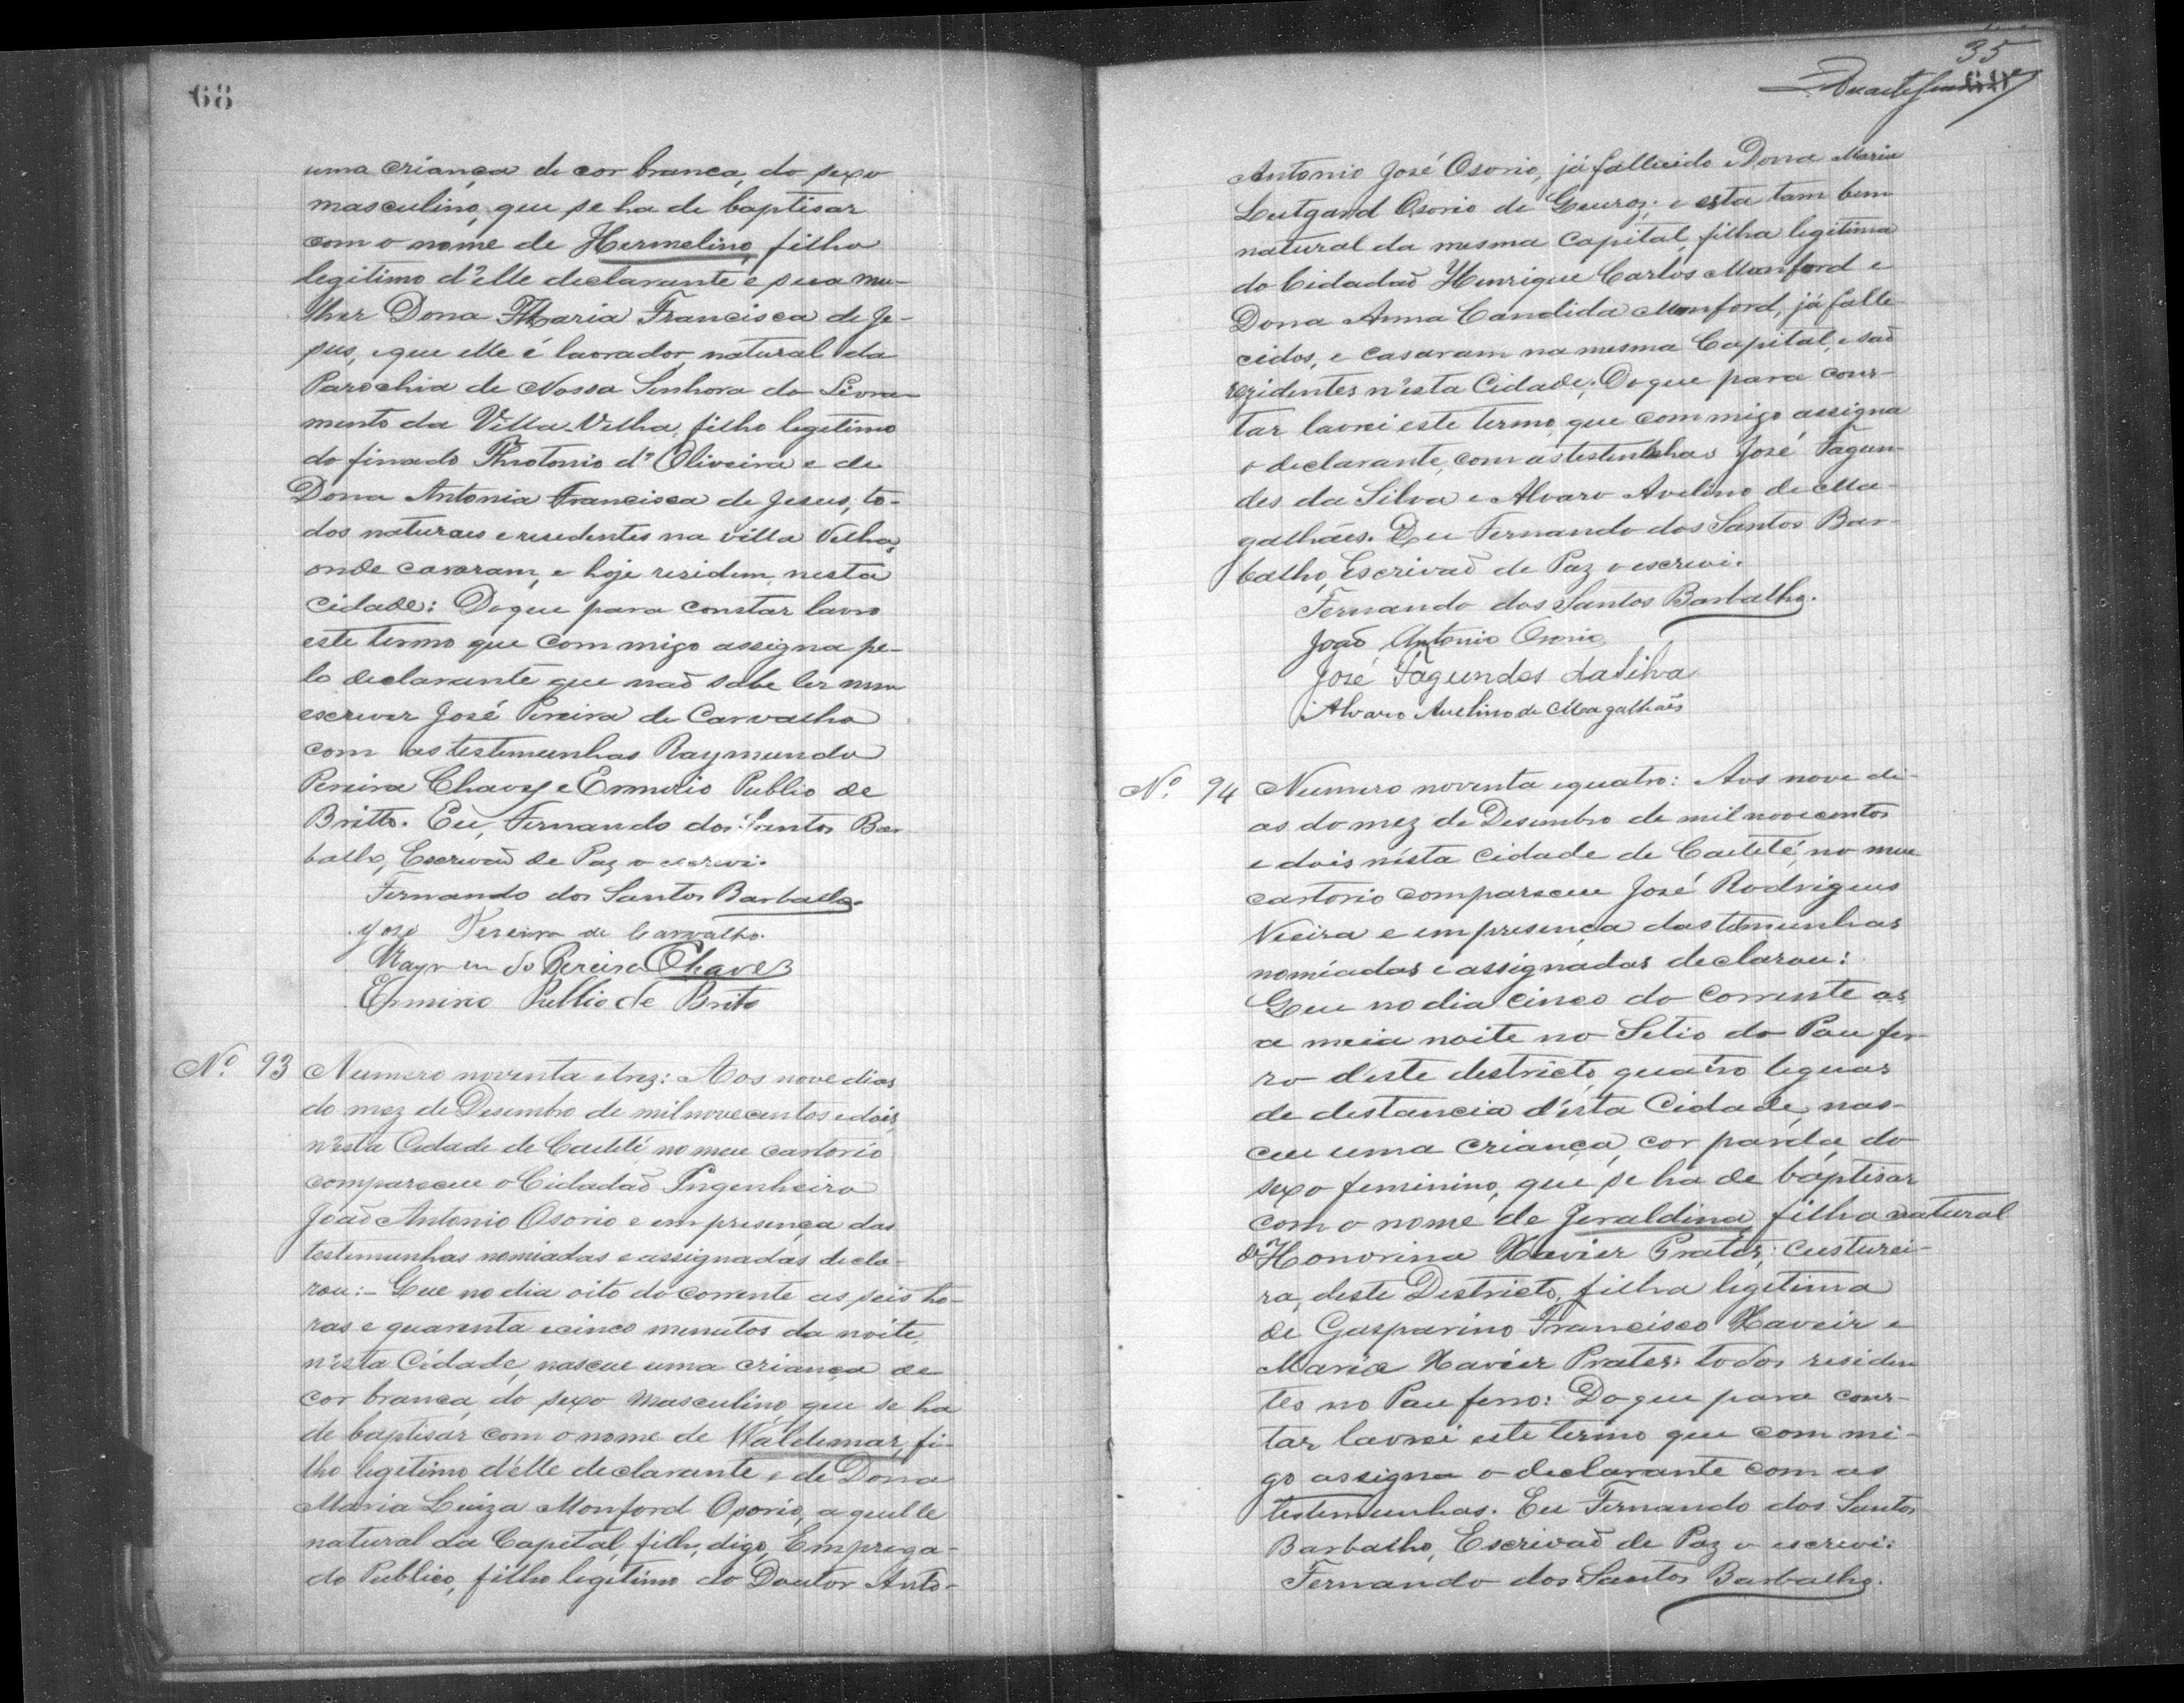 68
uma criança de cor branca, do sexo
masculino, que se ha de baptisar
com o nome de Hermelino, filho
legitimo d'elle declarante e sua mu-
lher Dona Maria Francisca de Je-
sus, e que elle é lavrador natural da
Parochia de Nossa Senhora do Livra-
mento da Villa-Velha, filho legitimo
do finado Theotonio d'Oliveira e de
Dona Antonia Francisca de Jesus, to-
dos naturaes e residentes na villa Velha,
onde casaram, e hoje residem, nesta
cidade: Do que para constar lavro
este termo que commigo assigna pe-
lo declarante que naõ sabe ler nem
escrever José Pereira de Carvalho
com as testemunhas Raymundo
Pereira Chaves e Ermirio Publio de
Britto. Eu, Fernando dos Santos Bar-
balho, Escrivaõ de Paz o escrevi.
Fernando dos Santos Barbalho.
José Pereira de Carvalho.
Raymundo Pereira Chaves
Ermirio Publio de Brito
Nº 93 Numero noventa e trez: Aos nove dias
do mez de Desembro de mil novecentos e dois,
n'esta Cidade de Caeteté no meu cartorio
compareceu o Cidadaõ Ingenheiro
Joaõ Antonio Osorio e em presença das
testemunhas nomiadas e assignadas decla-
rou:- Que no dia oito do corrente as seis ho-
ras e quarenta e cinco menutos da noite,
n'esta Cidade, nasceu uma criança de
cor branca, do sexo masculino, que se ha
de baptisar com o nome de Waldemar, fi-
lho legitimo d'elle declarante, e de Dona
Maria Luiza Monford Osorio, aquelle
natural da Capital, filh, digo, Emprega-
do Publico, filho legitimo do Doutor Anto-
35
Antonio José Osorio, já fallecido e Dona Maria
Lutgard Osorio de Queroz; e esta tam bem
natural da mesma Capital, filha legitima
do Cidadaõ Henrique Carlos Monford e
Dona Anna Candida Monford, já falle-
cidos, e casaram na mesma Capital, e saõ
rezidentes n'esta Cidade; Do que para cons-
tar lavrei este termo, que commigo assigna
o declarante, com as testemunhas José Fagun-
des da Silva e Alvaro Avelino de Ma-
galhães. Eu Fernando dos Santos Bar-
balho, Escrivaõ de Paz o escrevi.
Fernando dos Santos Barbalho.
Joaõ Antonio Osorio
José Fagundes da Silva
Alvaro Avelino de Magalhães
Nº 94 Numero noventa e quatro: Aos nove di-
as do mez de Desembro de mil novecentos
e dois n'esta Cidade de Caeteté, no meu
cartorio compareceu José Rodrigues
Vieira e em presença das temunhas
nomiadas e assignadas declarou:
Que no dia cinco do corrente as
a meia noite no Setio do Pau fer-
ro d'este destricto, quatro leguas
de distancia d'esta Cidade, nas-
ceu uma criança, cor parda, do
sexo feminino, que se ha de baptisar
com o nome de Jeraldina, filha natural
de Honorina Xavier Prates, custurei-
ra, deste Destricto, filha legitima
de Gasparino Francisco Xaveir e
Maria Xavier Prates: todos residen-
tes no Pau ferro: Do que para cons-
tar lavrei este termo que com mi-
go assigna o declarante com as
testemunhas. Eu Fernando dos Santos
Barbalho, Escrivaõ de Paz o escrevi:
Fernando dos Santos Barbalho.